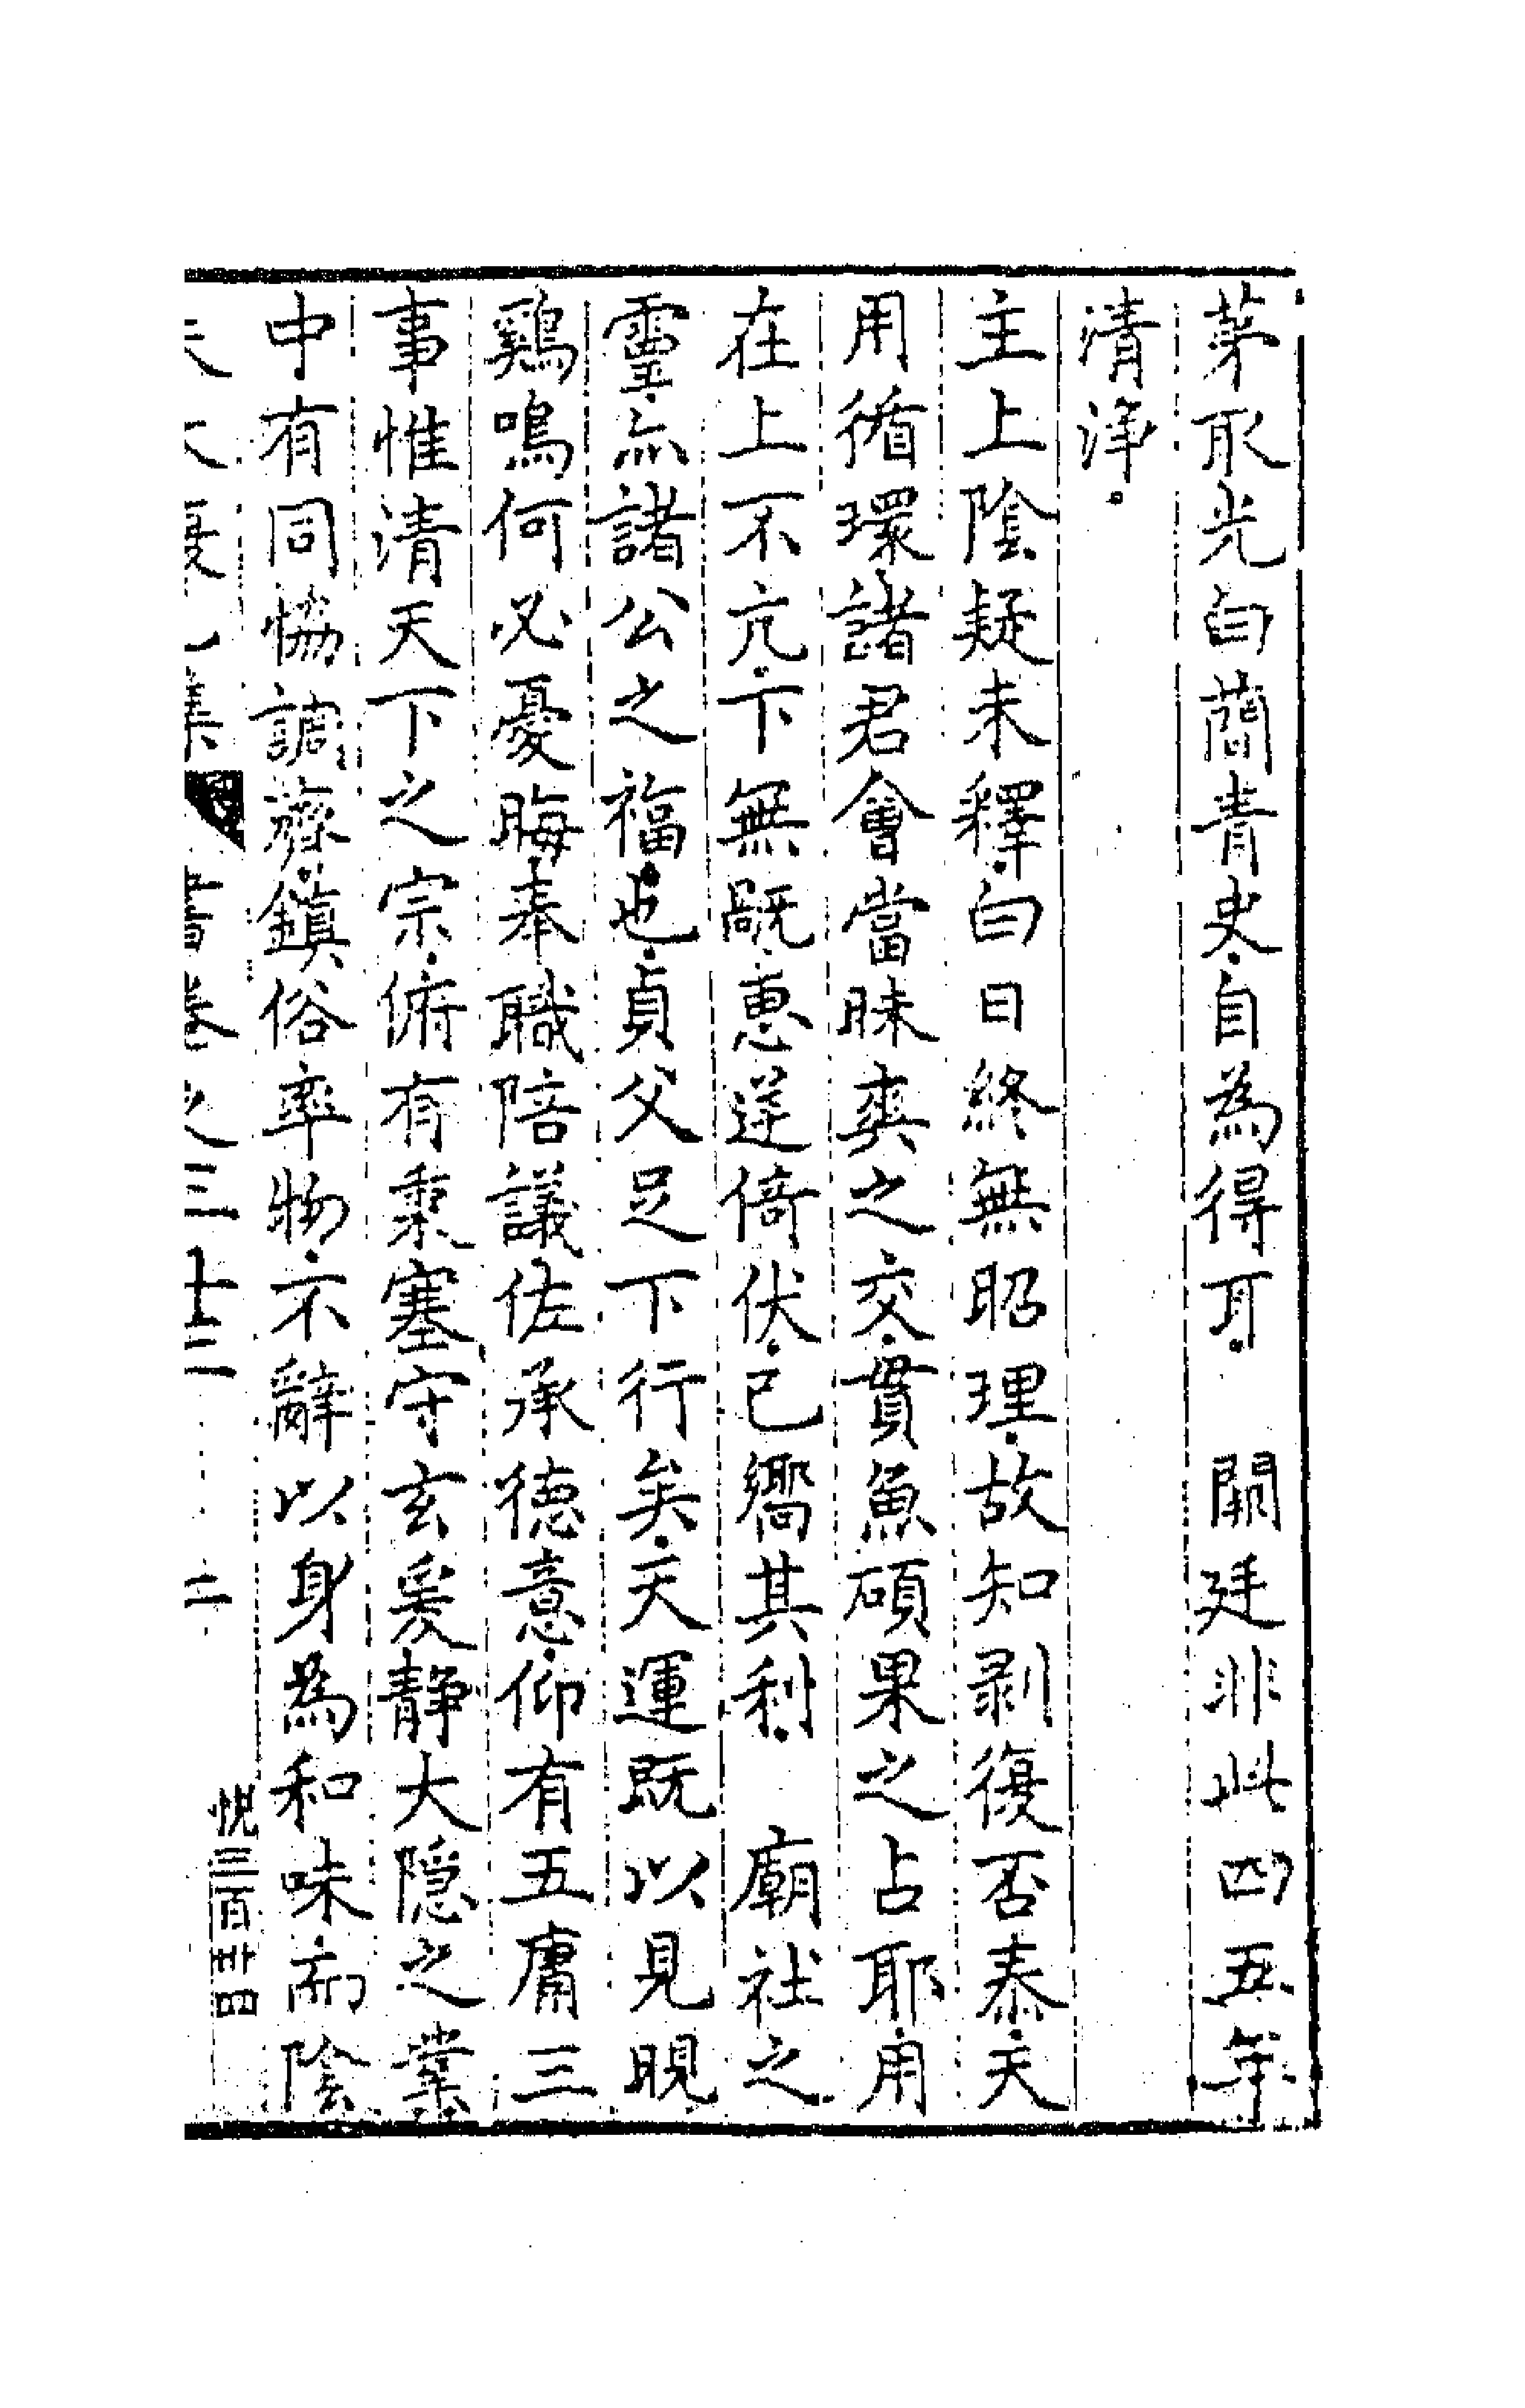 茅取光白蕳青史自為得耳 闕廷非此四五年
清淨
主上陰疑未釋白日終無昭理故知剥復否泰天
用循環諸君會當昧爽之交貫魚碩果之占耶用
在上不亢下無既惠逆倚伏已嚮其利 廟社之
靈亦諸公之福也貞父足下行矣天運既以見晛
鷄鳴何必憂晦奉職陪議佐承德意仰有五庸三
事惟清天下之宗俯有秉塞守玄爰静大隠之業
中有同恊調齊鎮俗率物不辭以身為和味而陰
集 書卷之三十三 二
悅三百卅四